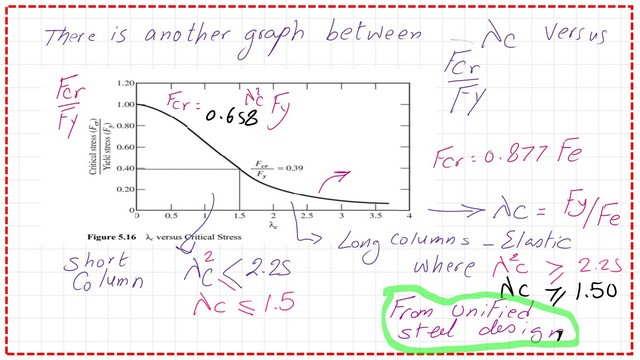 There is another graph between λc versus
Fcr/Fy
Fcr/Fy
Fcr = 0.658^λc² Fy
Critical stress (Fcr)
Yield stress (Fy)
1.20
1.00
0.80
0.60
0.40
0.20
0
Fcr/Fy = 0.39
0 0.5 1 1.5 2 2.5 3 3.5 4
λc
Figure 5.16 λc versus Critical Stress
Fcr = 0.877 Fe
λc = Fy/Fe
Long columns - Elastic
where λc² ≥ 2.25
λc ≥ 1.50
short column
λc² ≤ 2.25
λc ≤ 1.5
From Unified
steel design